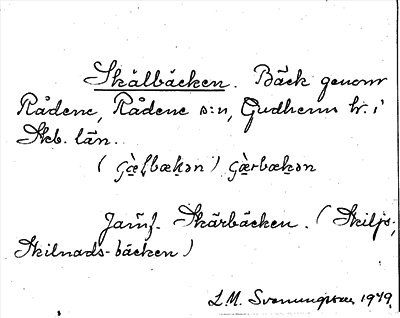 Skälbäcken. Bäck genom
Rådene, Rådene s:n, Gudhems hr. i
Skb. län.
Jämf. Skärbäcken. (Skiljs-,
Skilnads-bäcken)
L.M. Svenungsson 1949.